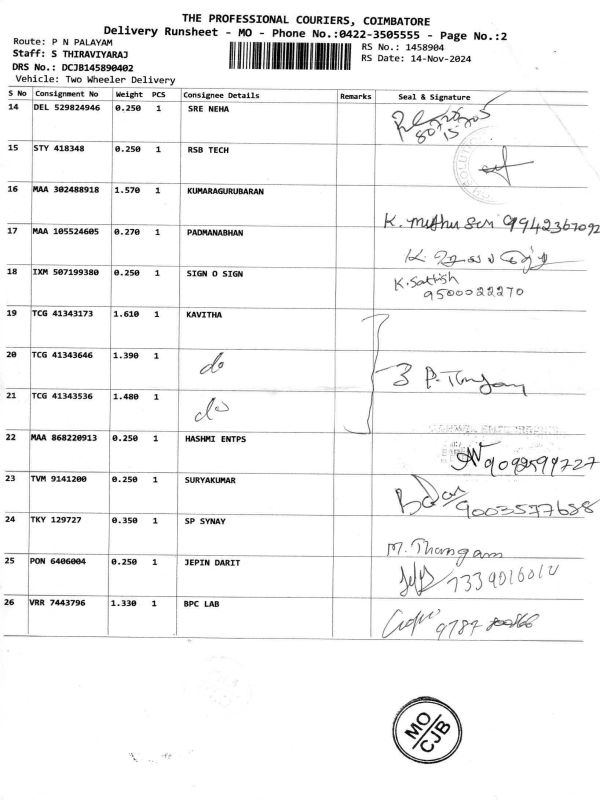 THE PROFESSIONAL COURIERS, COIMBATORE
Delivery Runsheet - MO - Phone No.:0422-3505555 - Page No.:2
Route: P N PALAYAM
RS No.: 1458904
Staff: S THIRAVIYARAJ
RS Date: 14-Nov-2024
DRS No.: DCJB145890402
Vehicle: Two Wheeler Delivery
S No Consignment No Weight PCS Consignee Details Remarks Seal & Signature
14 DEL 529824946 0.250 1 SRE NEHA
15 STY 418348 0.250 1 RSB TECH
16 MAA 302488918 1.570 1 KUMARAGURUBARAN
K. 9942367092
17 MAA 105524605 0.270 1 PADMANABHAN
18 IXM 507199380 0.250 1 SIGN O SIGN
K. Sattish
9500022270
19 TCG 41343173 1.610 1 KAVITHA
20 TCG 41343646 1.390 1 do
3
21 TCG 41343536 1.480 1 do
22 MAA 868220913 0.250 1 HASHMI ENTPS
23 TVM 9141200 0.250 1 SURYAKUMAR
9003577688
24 TKY 129727 0.350 1 SP SYNAY
M. Thangam
25 PON 6406004 0.250 1 JEPIN DARIT
26 VRR 7443796 1.330 1 BPC LAB
9787
MO
CJB